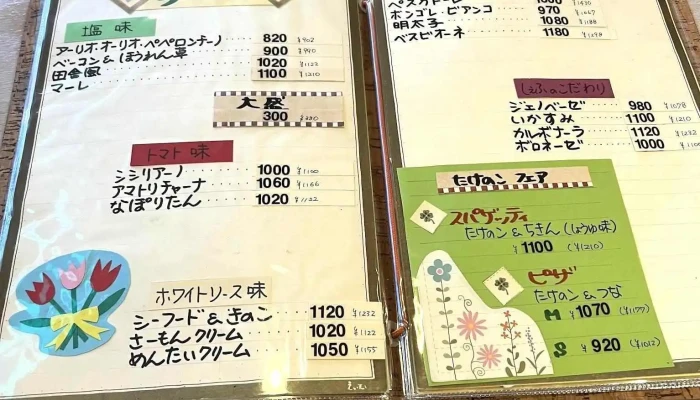 塩味
アーリオ・オーリオ・ペペロンチーノ 820 ¥902
ベーコン&ほうれん草 900 ¥990
田舎風 1020 ¥1122
マーレ 1100 ¥1210
大盛
300 ¥330
トマト味
シシリアーノ 1000 ¥1100
アマトリチャーナ 1060 ¥1166
なぽりたん 1020 ¥1122
ホワイトソース味
シーフード&きのこ 1120 ¥1232
さーもんクリーム 1020 ¥1122
めんたいクリーム 1050 ¥1155
ボンゴレ・ビアンコ 970 ¥1067
明太子 1080 ¥1188
ベスビオーネ 1180 ¥1298
しぇふのこだわり
ジェノベーゼ 980 ¥1078
いかすみ 1100 ¥1210
カルボナーラ 1120 ¥1232
ボロネーゼ 1000 ¥1100
たけのこ フェア
スパゲッティ
たけのこ&ちきん(しょうゆ味)
¥1100 (¥1210)
ピザ
たけのこ&つな
M ¥1070 (¥1177)
S ¥920 (¥1012)